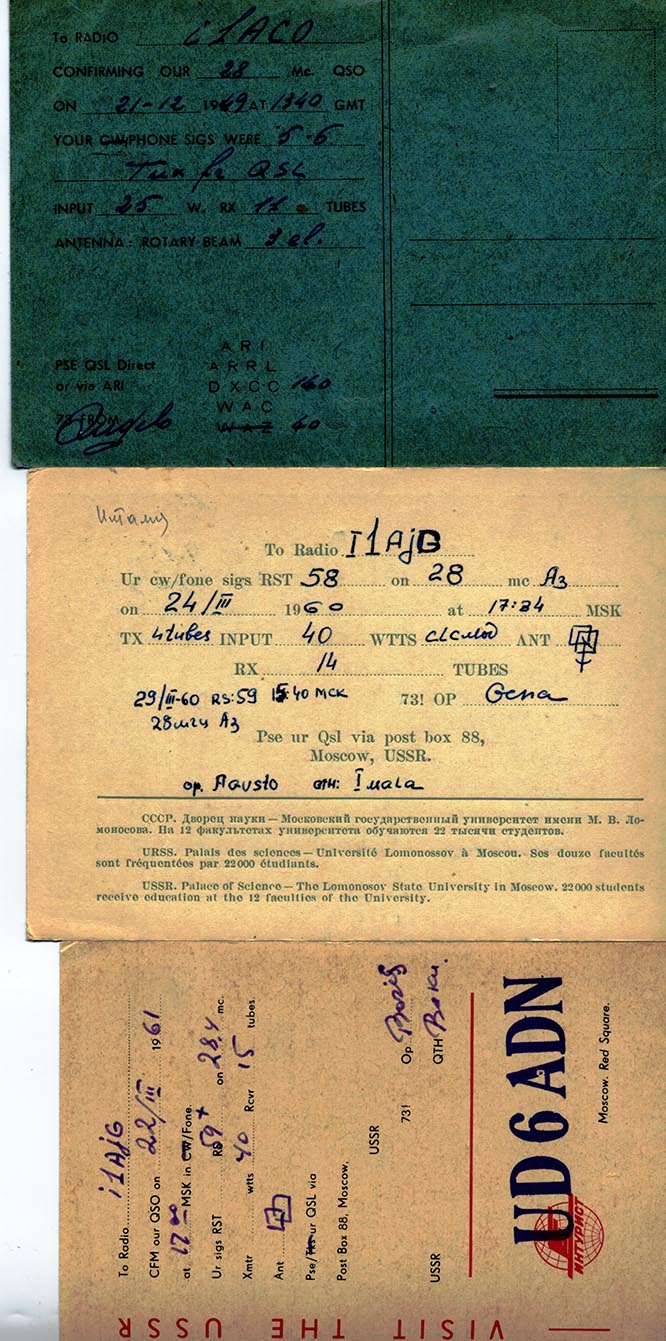 To RADIO i1ACO
CONFIRMING OUR 28 Mc. QSO
ON 21-12 1949 AT 1340 GMT
YOUR CW/PHONE SIGS WERE 5-6
Tnx for QSL
INPUT 25 W. RX 11 TUBES
ANTENNA: ROTARY BEAM 3 el.
PSE QSL Direct
or via ARI
73 FROM Angelo
ARI
ARRL
DXCC 140
WAC
WAZ 40
Италия
To Radio I1AjG
Ur cw/fone sigs RST 58 on 28 mc A3
on 24/III 1960 at 17:34 MSK
TX 4tubes INPUT 40 WTTS ANT
RX 14 TUBES
29/III-60 RS:59 15:40 МСК 73! OP Gena
28мгц A3
Pse ur Qsl via post box 88,
Moscow, USSR.
op. Fausto QTH: Imola
СССР. Дворец науки — Московский государственный университет имени М. В. Ло-
моносова. На 12 факультетах университета обучаются 22 тысячи студентов.
URSS. Palais des sciences — Université Lomonossov à Moscou. Ses douze facultés
sont fréquentées par 22000 étudiants.
USSR. Palace of Science — The Lomonosov State University in Moscow. 22000 students
receive education at the 12 faculties of the University.
To Radio i1AjG
CFM our QSO on 22/III 1961
at 17 00 MSK in CW/Fone.
Ur sigs RST RS 59+ on 28,4 mc.
Xmtr wtts 40 Rcvr 15 tubes.
Ant
Pse/Tks ur QSL via
Post Box 88, Moscow,
USSR
73! Op Boris
USSR QTH Baku.
UD6ADN
ИНТУРИСТ
Moscow. Red Square.
VISIT THE USSR